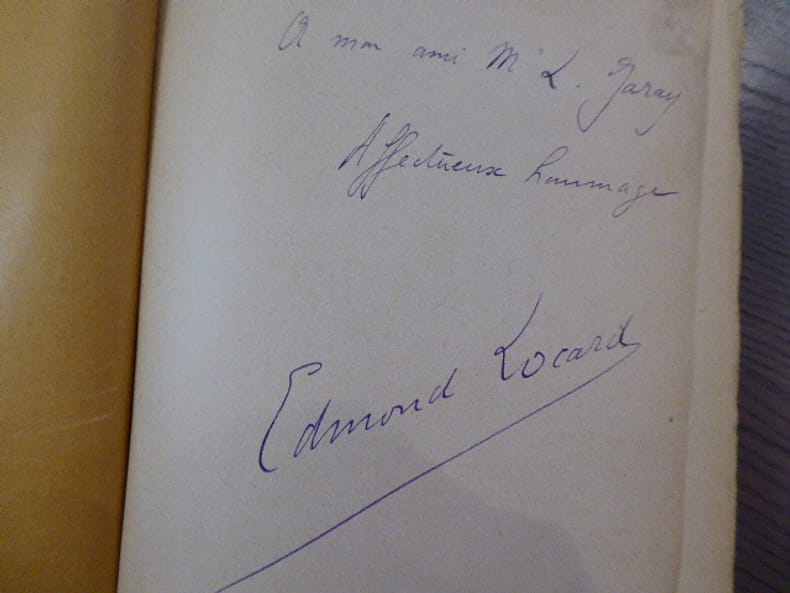 A mon ami Mr L. Garay
Affectueux hommage
Edmond Locard